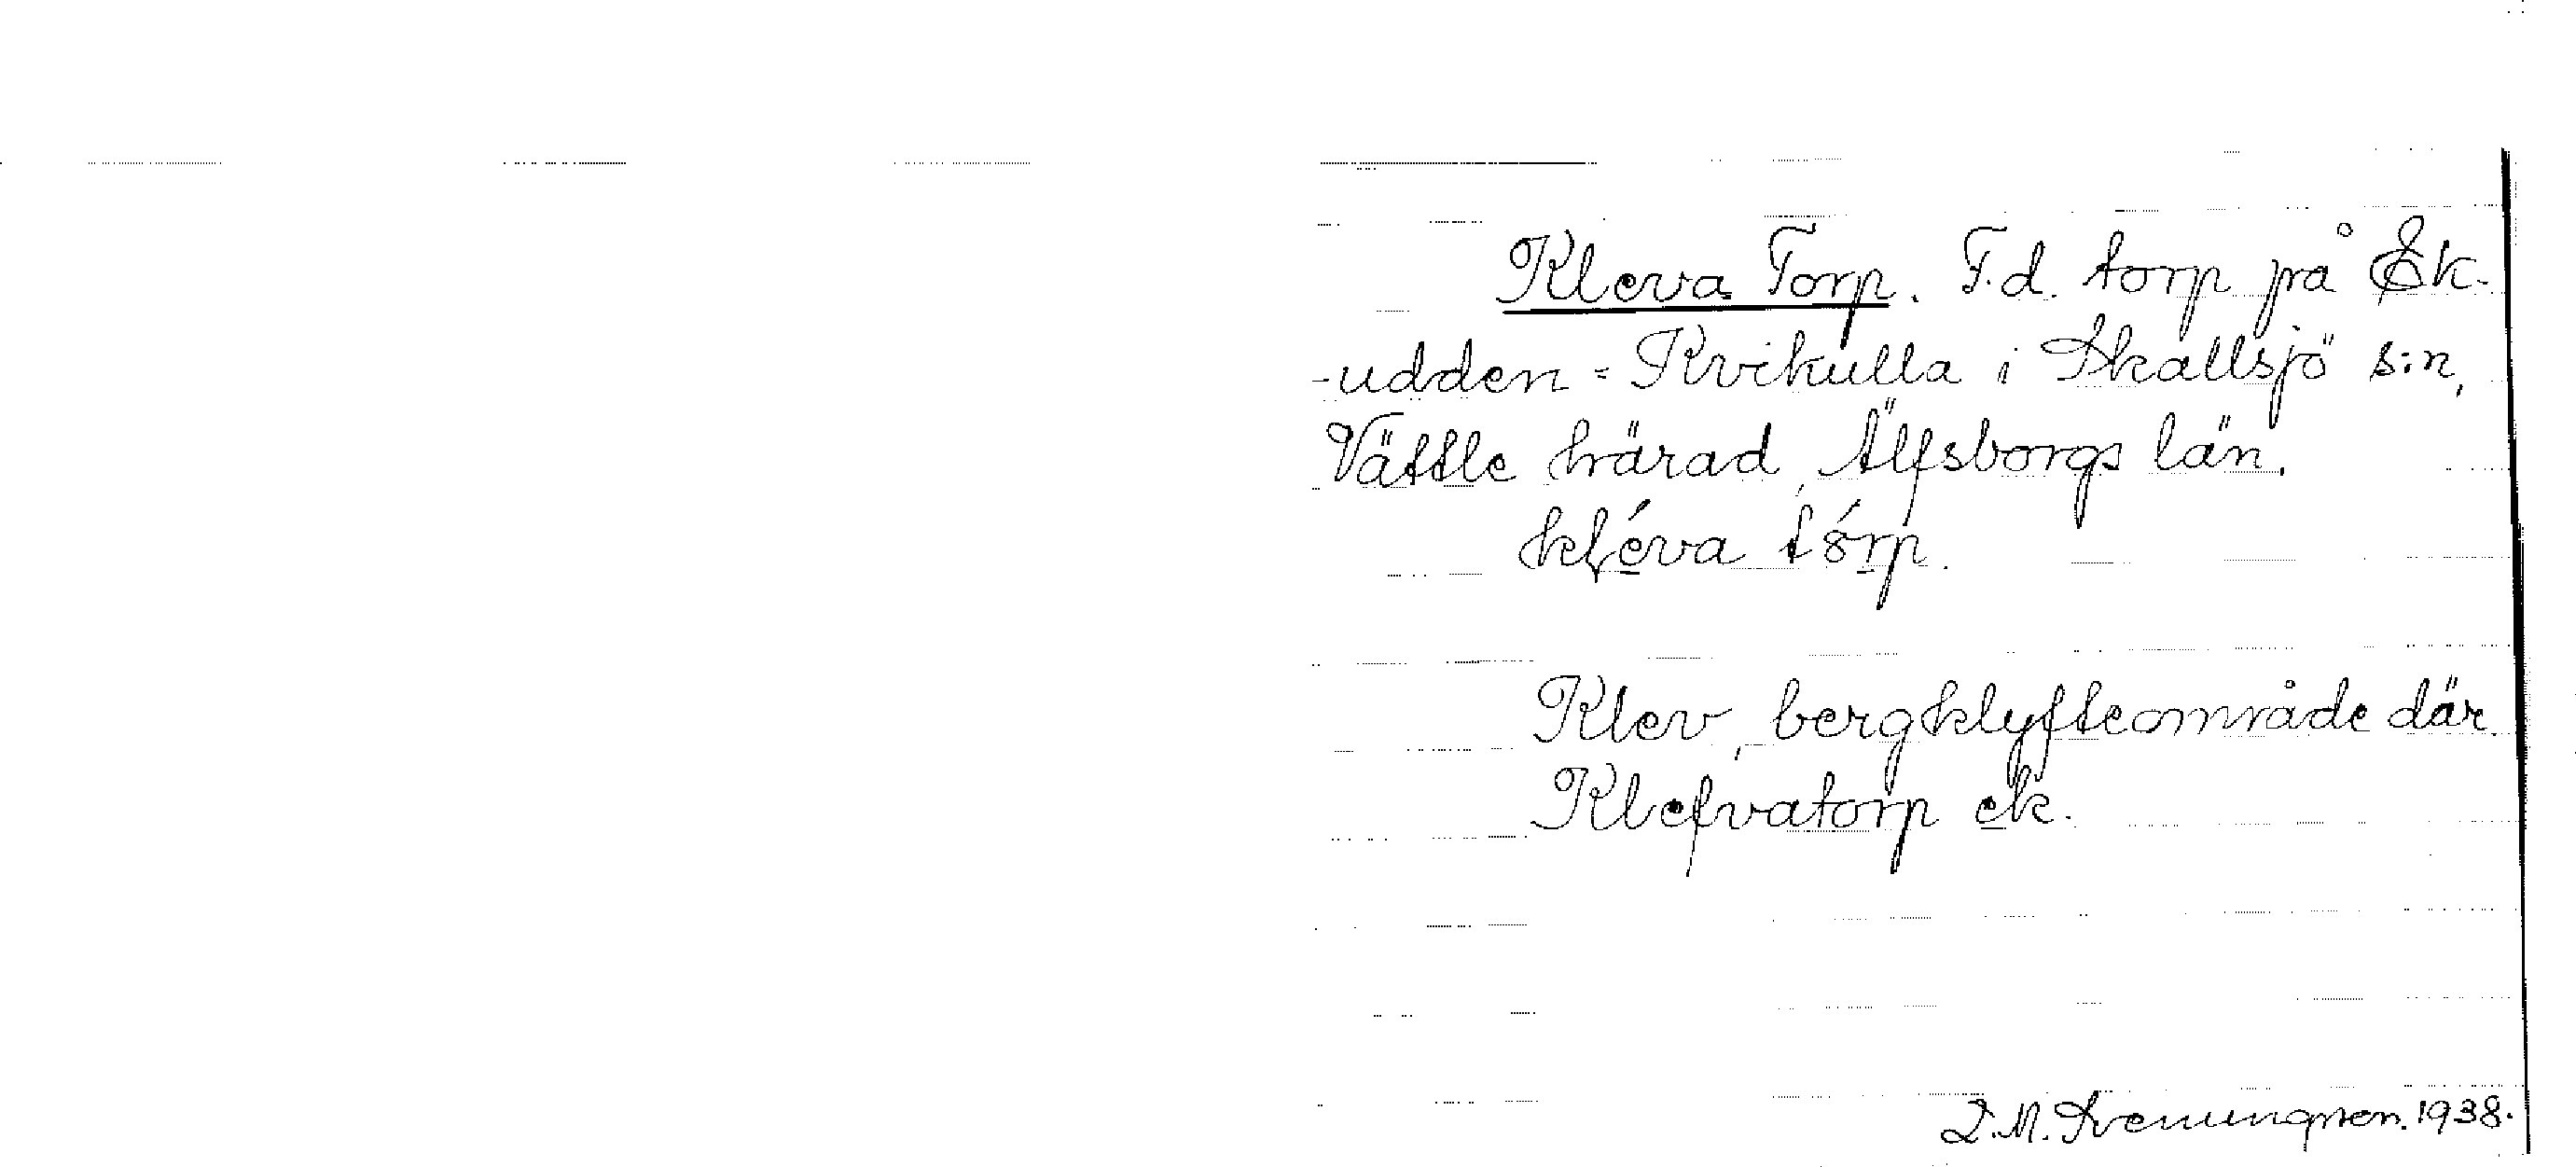 Kleva Torp. F.d. torp på Ek-
-udden = Kvikulla i Skallsjö s:n,
Vättle härad, Älfsborgs län.
kléva tórp.
Klev, bergklyfteområde där.
Klefvatorp ek.
1938.